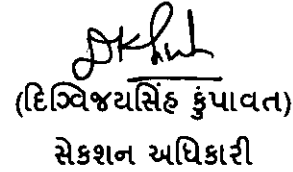 (દિગ્વિજયસિંહ કુંપાવત)
સેકશન અધિકારી